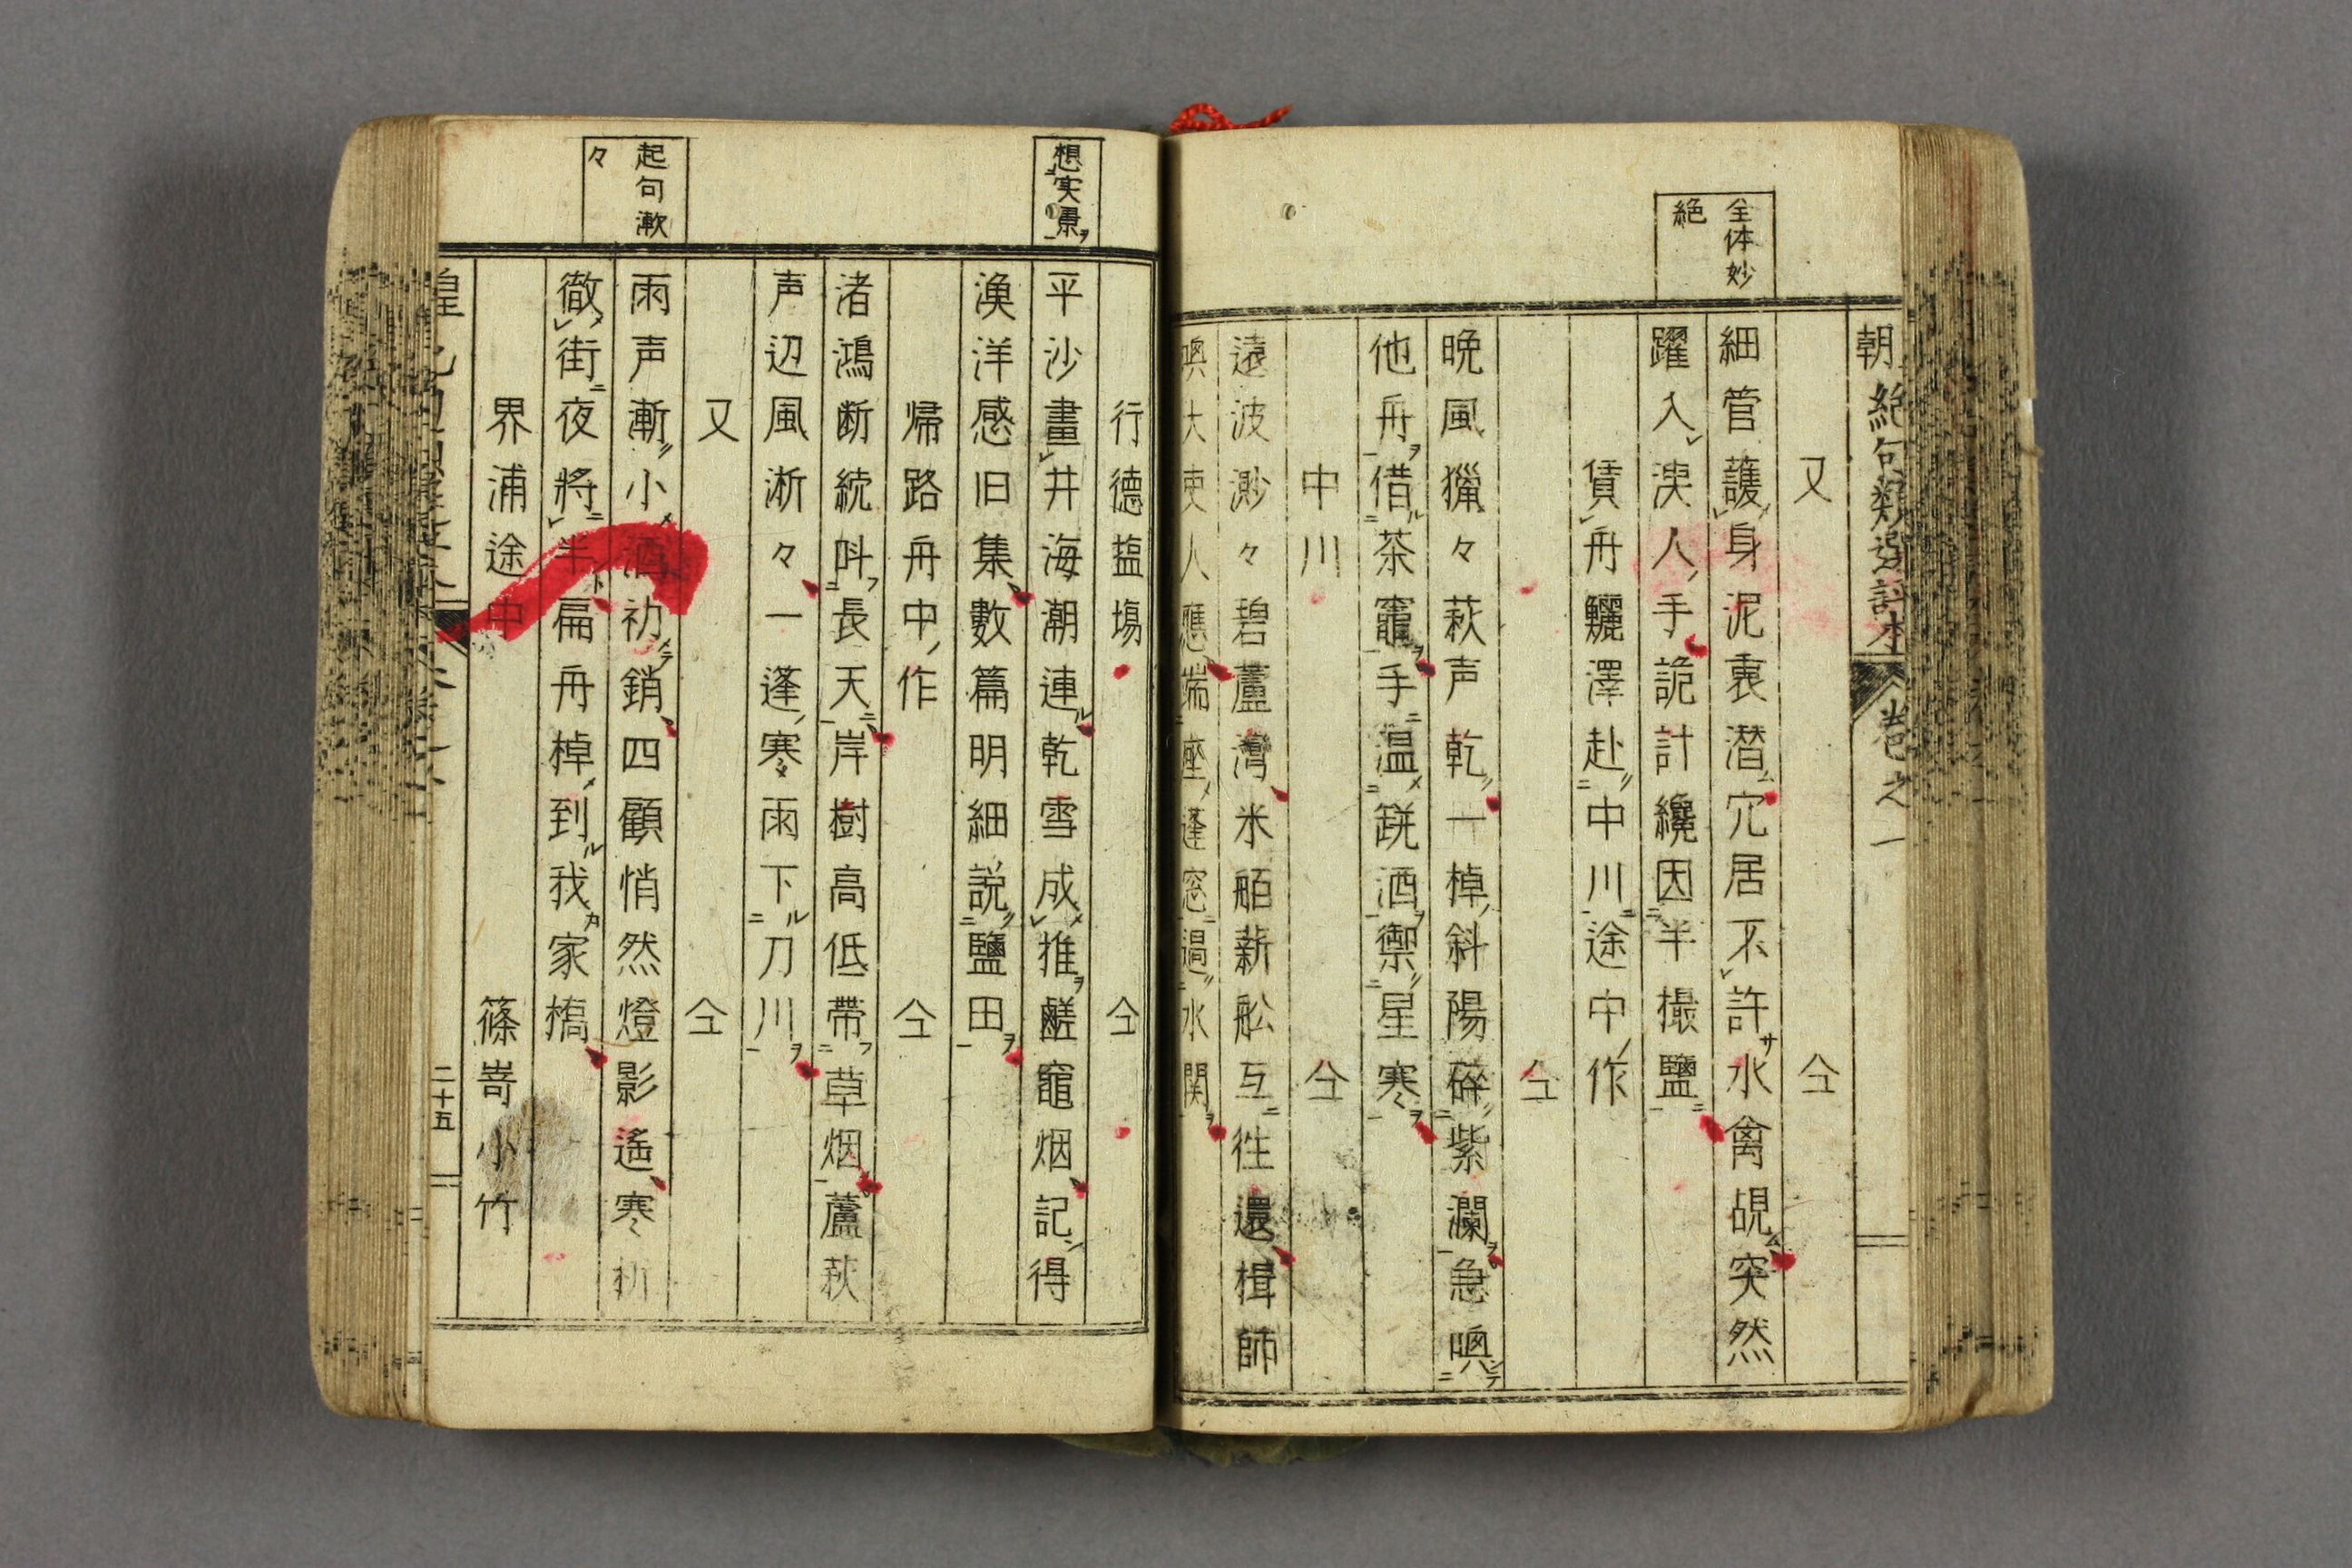 全体妙
絶
朝絶句類選評本 巻之一
又 仝
細管護身泥裏潜冗居不許水禽覘突然
躍入洟人手詭計纔因半撮鹽
賃舟驪澤赴中川途中作
仝
晩風獵々萩声乾一棹斜陽砕紫瀾急喚
他舟借茶竈手温跣酒禦星寒
中川 仝
遠波渺々碧蘆湾米舶薪舩互往還楫師
大吏人應端座篷窓過水関
想実景
起句漱
々
行徳塩場 仝
平沙畫井海潮連乾雪成推鹺竈烟記得
漁洋感旧集數篇明細説鹽田
帰路舟中作 仝
渚鴻断続呌長天岸樹高低帶草烟蘆萩
声辺風淅々一篷寒雨下刀川
又 仝
雨声漸小酒初銷四顧悄然燈影遙寒柝
徹街夜将半扁舟棹到我家橋
界浦途中 篠嵜小竹
二十五